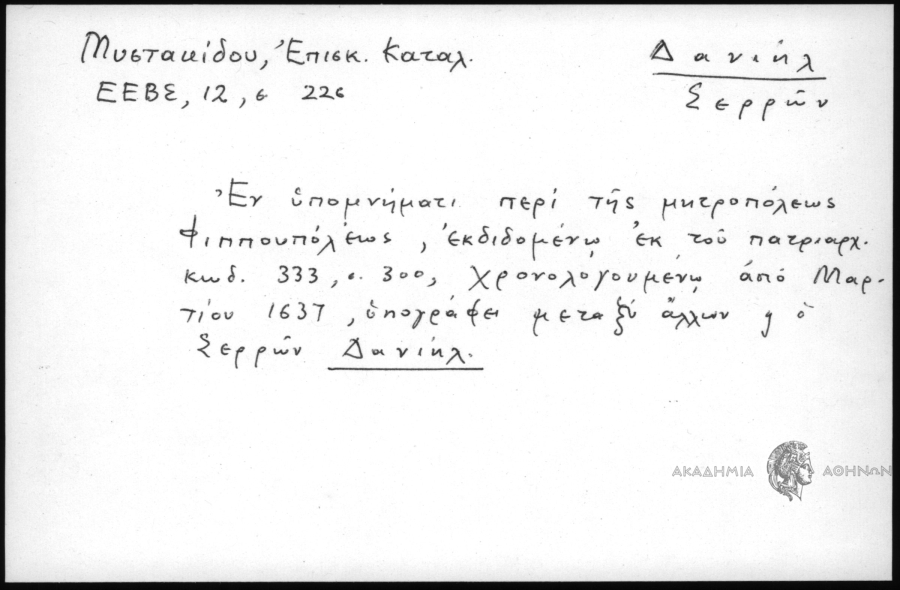 Μυστακίδου, Ἐπισκ. Καταλ.
ΕΕΒΣ, 12, σ 226
Δανιήλ
Σερρῶν
Ἐν ὑπομνήματι περί τῆς μητροπόλεως
Φιππουπόλεως, ἐκδιδομένῳ ἐκ τοῦ πατριαρχ.
κωδ. 333, σ. 300, χρονολογουμένῳ ἀπό Μαρ-
τίου 1637, ὑπογράφει μεταξύ ἄλλων ὁ
Σερρῶν Δανιήλ.
ΑΚΑΔΗΜΙΑ ΑΘΗΝΩΝ